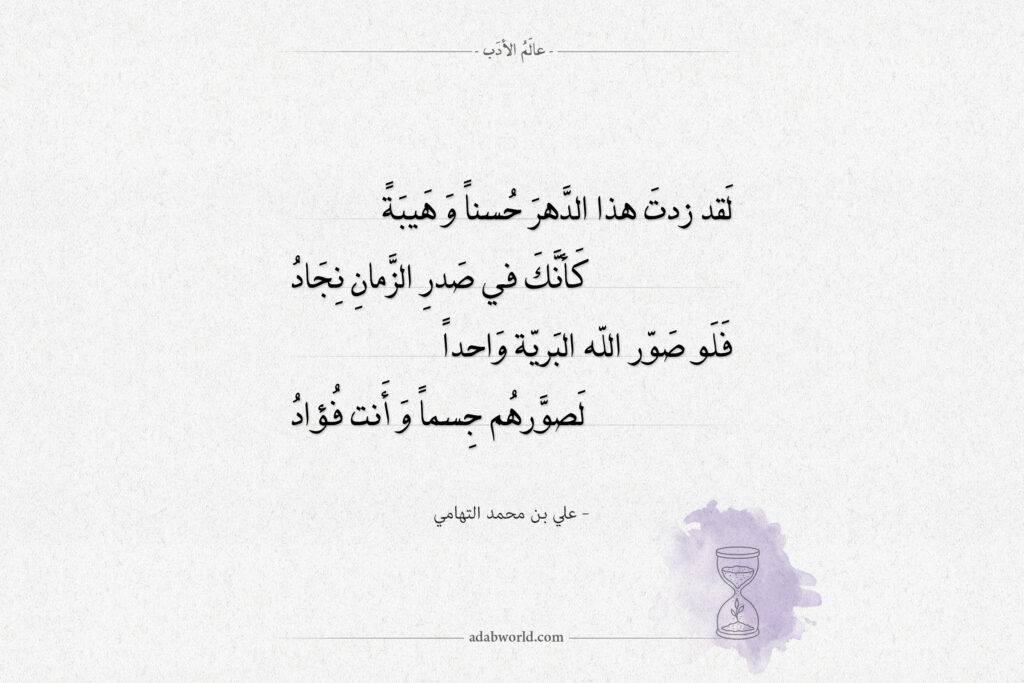 - عالَمُ الأدَب -
لَقد زدتَ هذا الدَّهرَ حُسناً وَ هَيبَةً
كَأَنَّكَ في صَدرِ الزَّمانِ نِجَادُ
فَلَو صَوّر اللّه البَريّة وَاحداً
لَصوَّرهُم جِسماً وَ أَنت فُؤادُ
- علي بن محمد التهامي
adabworld.com